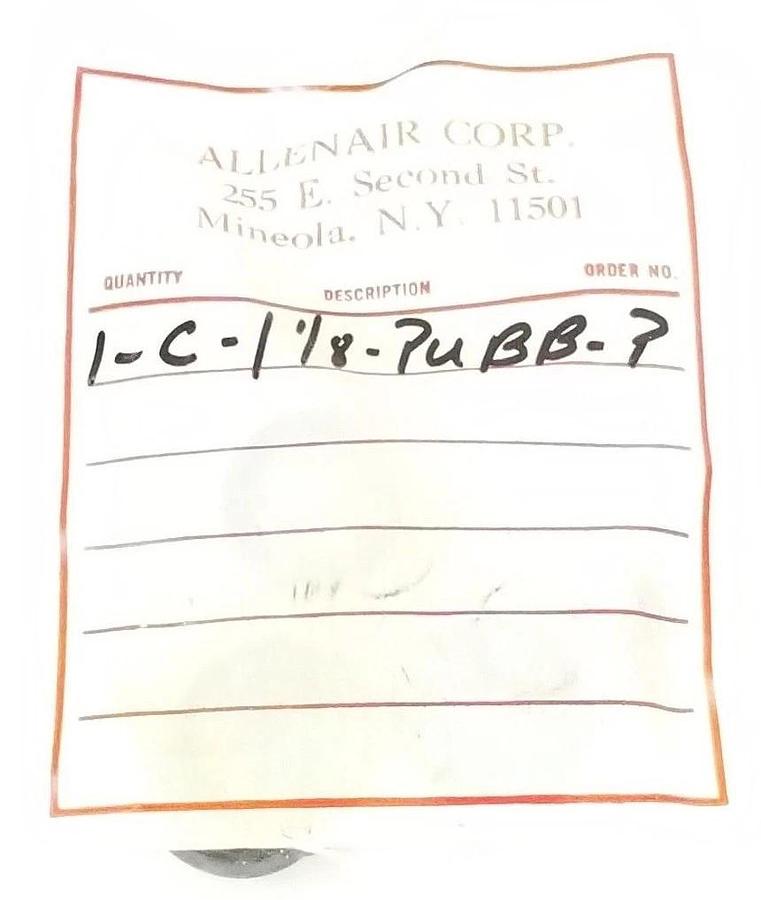 ALLENAIR CORP.
255 E. Second St.
Mineola, N.Y. 11501
QUANTITY DESCRIPTION ORDER NO.
1-C-1 1/8-PUBB-P